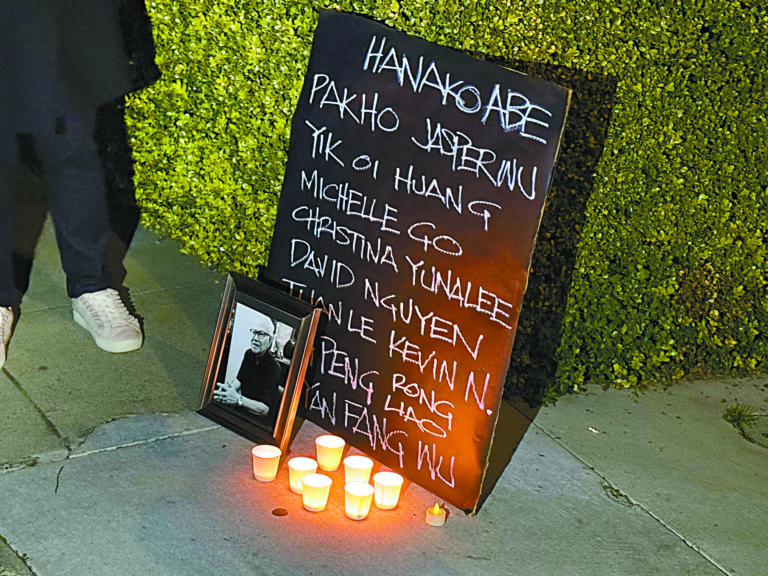 HANAKO ABE
PAK HO JASPER WU
YIK OI HUANG
MICHELLE GO
CHRISTINA YUNA LEE
DAVID NGUYEN
TUAN LE KEVIN N.
PENG RONG LIAO
YAN FANG WU